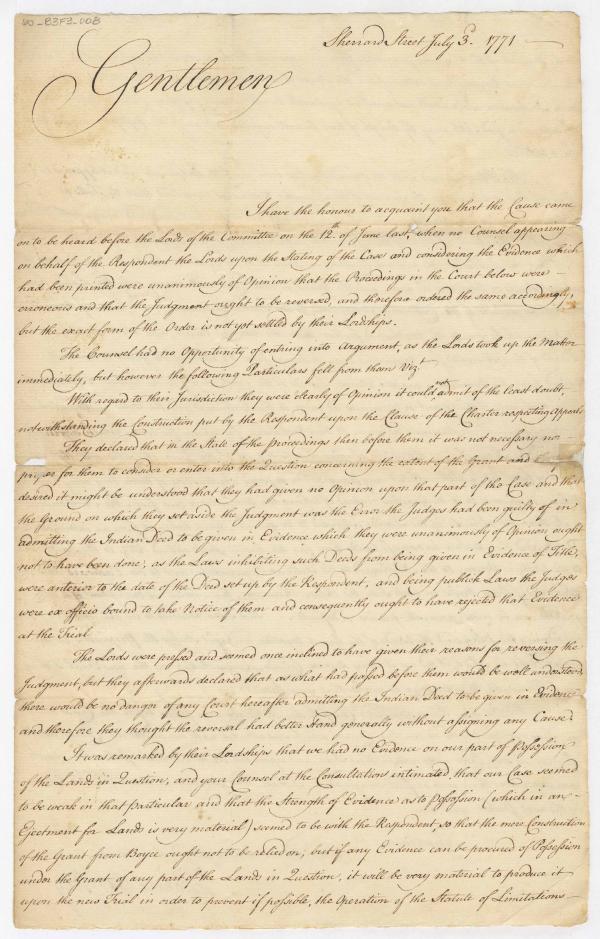 60-B3F3-008
Sherrard Street July 3d. 1771
Gentlemen
I have the honour to acquaint you that the Cause came
on to be heard before the Lords of the Committee on the 12th. of June last, when no Counsel appearing
on behalf of the Respondent the Lords upon the Stating of the Case and considering the Evidence which
had been printed were unanimously of Opinion that the Proceedings in the Court below were
erroneous and that the Judgment ought to be reversed, and therefore ordered the same accordingly,
but the exact form of the Order is not yet settled by their Lordships.
The Counsel had no Opportunity of entring into Argument, as the Lords took up the Matter
immediately, but however the following Particulars fell from them Vizt.
With regard to their Jurisdiction they were clearly of Opinion it could not admit of the least doubt,
notwithstanding the Construction put by the Respondent upon the Clause of the Charter respecting Appeals
They declared that in the State of the Proceedings then before them it was not necessary nor
proper for them to consider or enter into the Question concerning the extent of the Grant and
desired it might be understood that they had given no Opinion upon that part of the Case and that
the Ground on which they set aside the Judgment was the Error the Judges had been guilty of in
admitting the Indian Deed to be given in Evidence which they were unanimously of Opinion ought
not to have been done; as the Laws inhibiting such Deeds from being given in Evidence of Title,
were anterior to the date of the Deed set up by the Respondent, and being publick Laws the Judges
were ex officio bound to take Notice of them and consequently ought to have rejected that Evidence
at the Trial
The Lords were pressed and seemed once inclined to have given their reasons for reversing the
Judgment, but they afterwards declared that as what had passed before them would be well understood,
there would be no danger of any Court hereafter admitting the Indian Deed to be given in Evidence
and therefore they thought the reversal had better stand generally without assigning any Cause.
It was remarked by their Lordships that we had no Evidence on our part of Possession
of the Lands in Question, and your Counsel at the Consultations intimated, that our Case seemed
to be weak in that particular and that the Strength of Evidence as to Possession (which in an
Ejectment for Lands is very material) seemed to be with the Respondent, so that the mere Construction
of the Grant from Boyce ought not to be relied on; but if any Evidence can be procured of Possession
under the Grant of any part of the Lands in Question, it will be very material to produce it
upon the new Trial in order to prevent if possible, the Operation of the Statute of Limitations